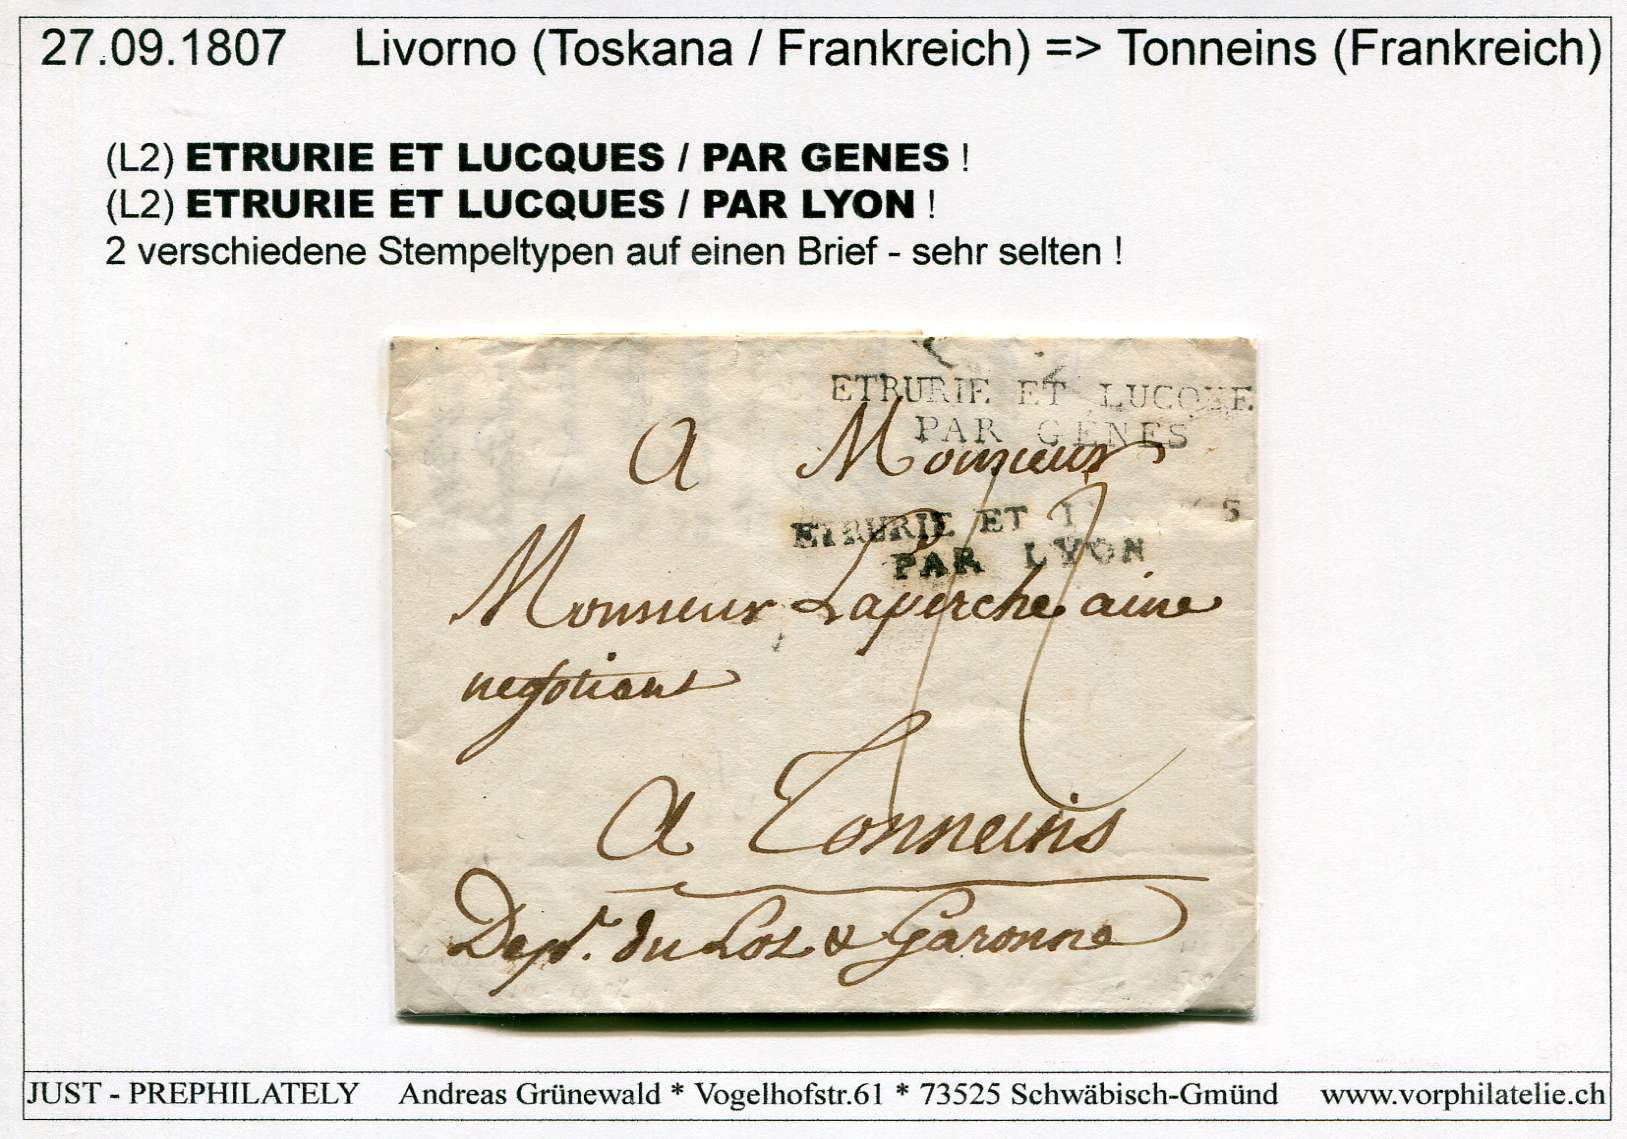 27.09.1807 Livorno (Toskana / Frankreich) => Tonneins (Frankreich)
(L2) ETRURIE ET LUCQUES / PAR GENES !
(L2) ETRURIE ET LUCQUES / PAR LYON !
2 verschiedene Stempeltypen auf einen Brief - sehr selten !
ETRURIE ET LUCQUE
PAR GENES
A Monsieur
ETRURIE ET
PAR LYON
Monsieur Laperche aine
negotiant
A Tonneins
Dept. du Lot & Garonne
JUST - PREPHILATELY Andreas Grünewald * Vogelhofstr.61 * 73525 Schwäbisch-Gmünd www.vorphilatelie.ch